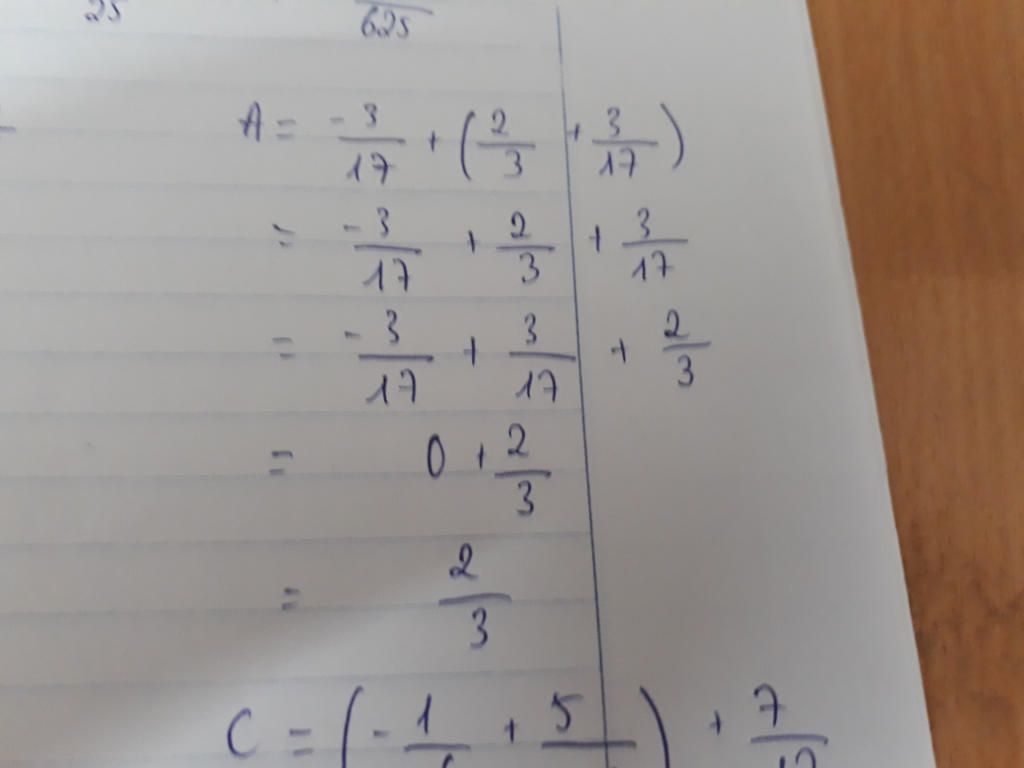 25 625
A = -3/17 + (2/3 + 3/17)
= -3/17 + 2/3 + 3/17
= -3/17 + 3/17 + 2/3
= 0 + 2/3
= 2/3
C = (-1 + 5) + 7